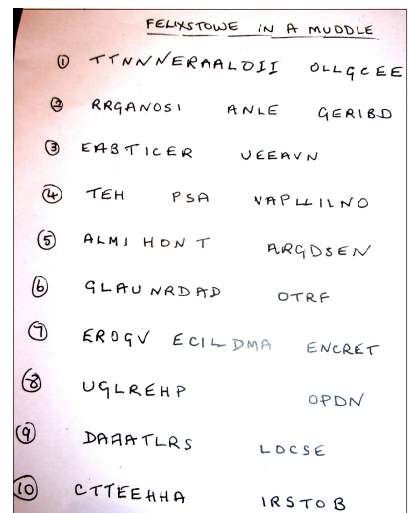 FELIXSTOWE IN A MUDDLE
① TTNNNERAALOII OLLGCEE
② RRGANOSI ANLE GERIBD
③ EABTICER UEEAVN
④ TEH PSA VAPLLILNO
⑤ ALMI HON T ARGDSEN
⑥ GLAUNRDAD OTRF
⑦ EROGV ECILDMA ENCRET
⑧ UGLREHP OPDN
⑨ DAAATLRS LOCSE
⑩ CTTEEHHA IRSTOB